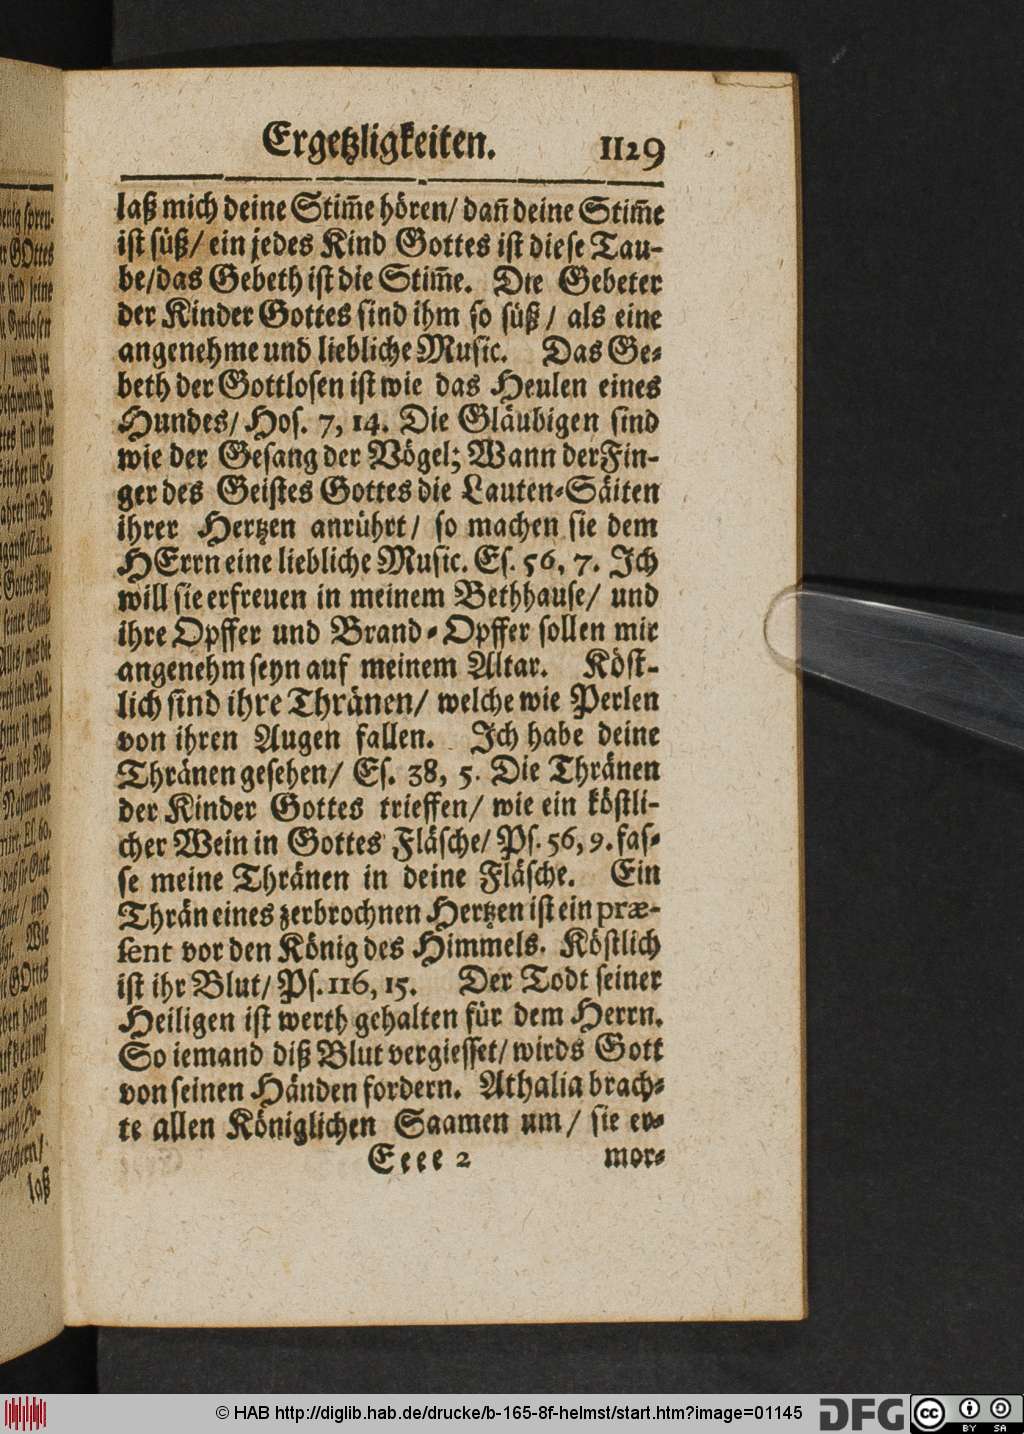 Ergetzligkeiten. 1129
laß mich deine Stim̄e hören/ dan̄ deine Stim̄e
ist süß/ ein jedes Kind Gottes ist diese Tau-
be/das Gebeth ist die Stim̄e. Die Gebeter
der Kinder Gottes sind ihm so süß/ als eine
angenehme und liebliche Music. Das Ge-
beth der Gottlosen ist wie das Heulen eines
Hundes/ Hos. 7, 14. Die Gläubigen sind
wie der Gesang der Vögel; Wann der Fin-
ger des Geistes Gottes die Lauten-Säiten
ihrer Hertzen anrührt/ so machen sie dem
HErrn eine liebliche Music. Es. 56, 7. Ich
will sie erfreuen in meinem Bethhause/ und
ihre Opffer und Brand-Opffer sollen mir
angenehm seyn auf meinem Altar. Köst-
lich sind ihre Thränen/ welche wie Perlen
von ihren Augen fallen. Ich habe deine
Thränen gesehen/ Es. 38, 5. Die Thränen
der Kinder Gottes trieffen/ wie ein köstli-
cher Wein in Gottes Fläsche/ Ps. 56, 9. fas-
se meine Thränen in deine Fläsche. Ein
Thrän eines zerbrochnen Hertzen ist ein præ-
sent vor den König des Himmels. Köstlich
ist ihr Blut/ Ps. 116, 15. Der Todt seiner
Heiligen ist werth gehalten für dem Herrn.
So iemand diß Blut vergiesset/ wirds Gott
von seinen Händen fordern. Athalia brach-
te allen Königlichen Saamen um/ sie er-
Eeee 2 mor-
laß
© HAB http://diglib.hab.de/drucke/b-165-8f-helmst/start.htm?image=01145
DFG cc BY SA